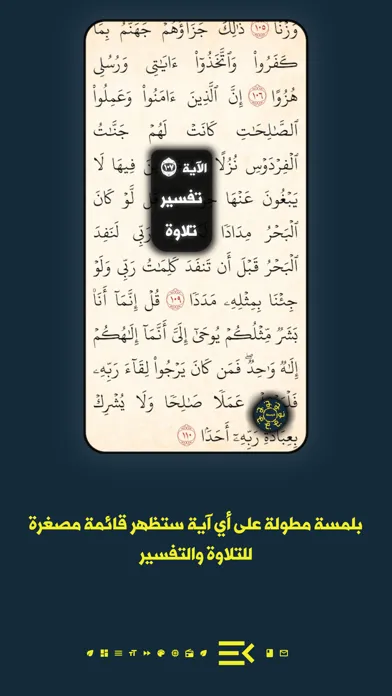 وَزۡنٗا ١٠٥ ذَٰلِكَ جَزَآؤُهُمۡ جَهَنَّمُ بِمَا
كَفَرُواْ وَٱتَّخَذُوٓاْ ءَايَٰتِي وَرُسُلِي
هُزُوًا ١٠٦ إِنَّ ٱلَّذِينَ ءَامَنُواْ وَعَمِلُواْ
ٱلصَّٰلِحَٰتِ كَانَتۡ لَهُمۡ جَنَّٰتُ
ٱلۡفِرۡدَوۡسِ نُزُلًا ينَ فِيهَا لَا
الآية ١٠٧
يَبۡغُونَ عَنۡهَا لَّوۡ كَانَ
تفسير
ٱلۡبَحۡرُ مِدَادٗا رَبِّي لَنَفِدَ
تلاوة
ٱلۡبَحۡرُ قَبۡلَ أَن تَنفَدَ كَلِمَٰتُ رَبِّي وَلَوۡ
جِئۡنَا بِمِثۡلِهِۦ مَدَدٗا ١٠٩ قُلۡ إِنَّمَآ أَنَا۠
بَشَرٞ مِّثۡلُكُمۡ يُوحَىٰٓ إِلَيَّ أَنَّمَآ إِلَٰهُكُمۡ
إِلَٰهٞ وَٰحِدٞۖ فَمَن كَانَ يَرۡجُواْ لِقَآءَ رَبِّهِۦ
عَمَلٗا صَٰلِحٗا وَلَا يُشۡرِكۡ
بِعِبَادَةِ رَبِّهِۦٓ أَحَدَۢا ١١٠
بلمسة مطولة على أي آية ستظهر قائمة مصغرة
للتلاوة والتفسير